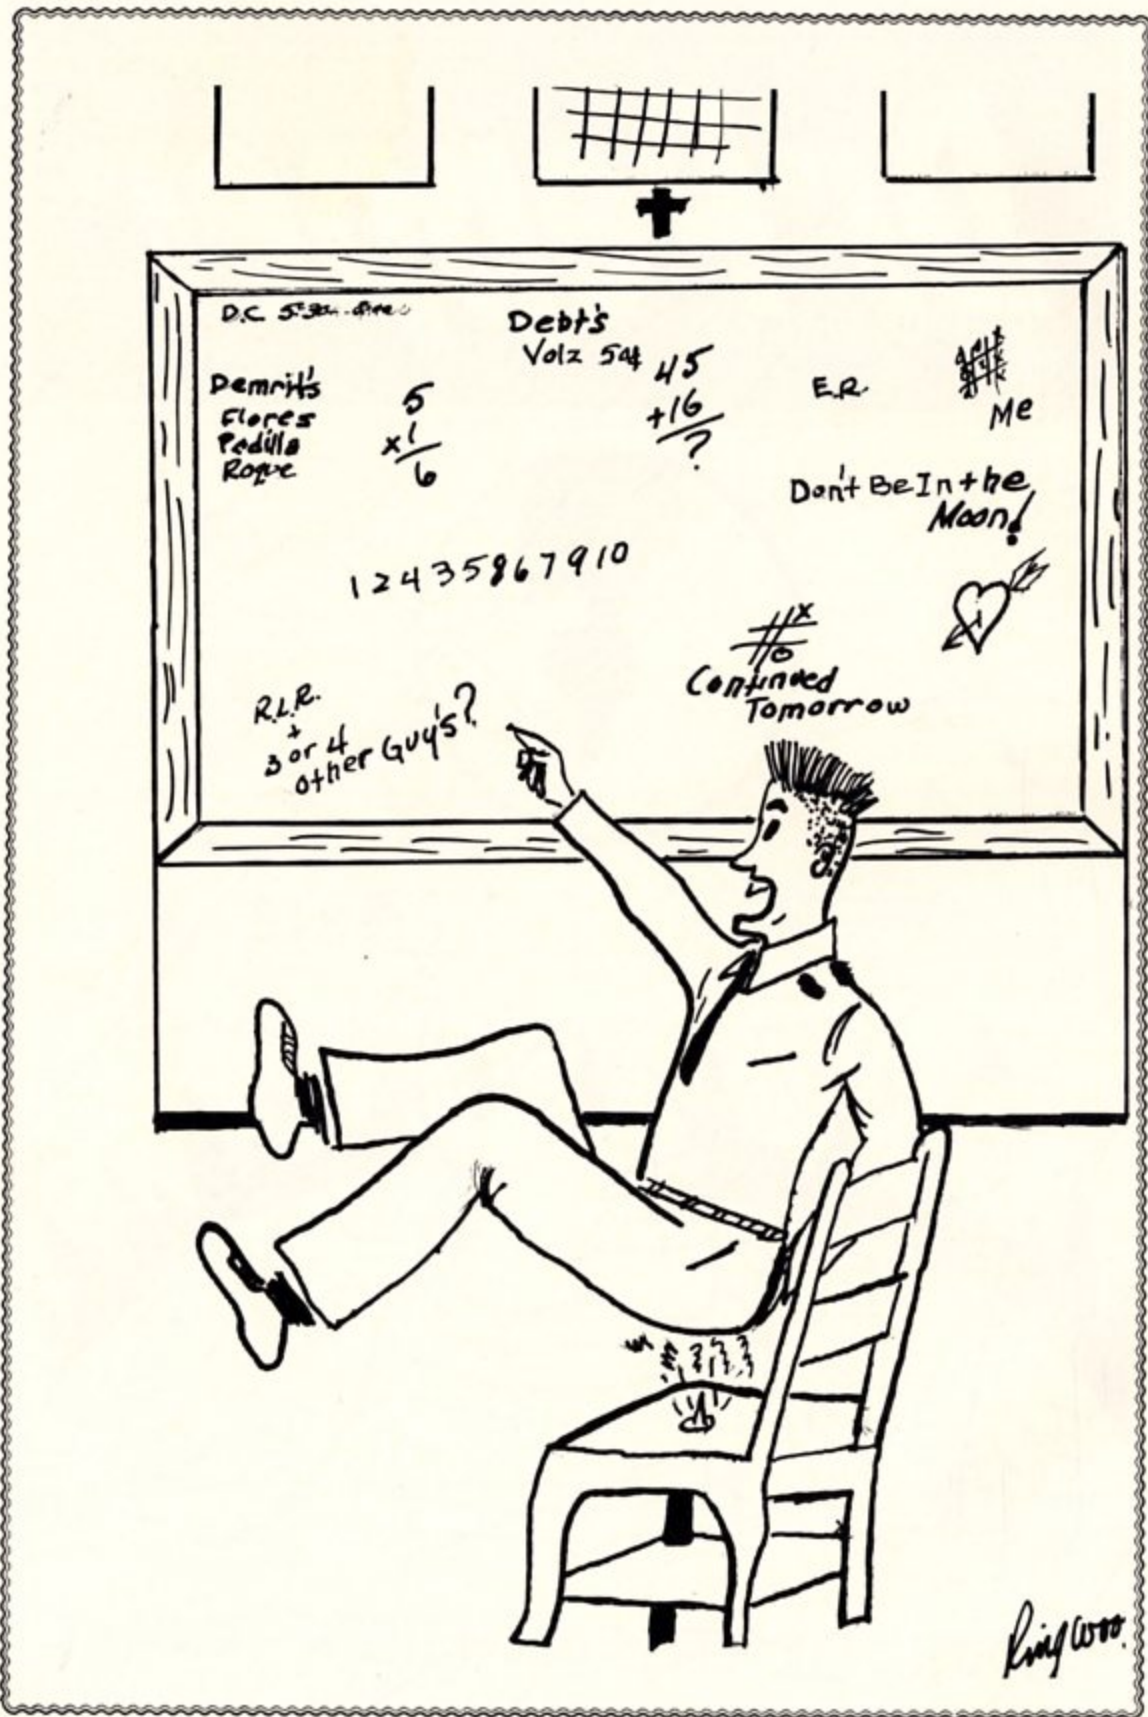 D.C. 5:30
Debt's
Volz 54¢
Demrit's
Flores
Padilla
Roque
5
x1
6
45
+16
?
E.R.
Me
Don't Be In the
Moon!
1 2 4 3 5 8 6 7 9 10
x
o
Continued
Tomorrow
R.L.R.
+
3 or 4
other Guy's?